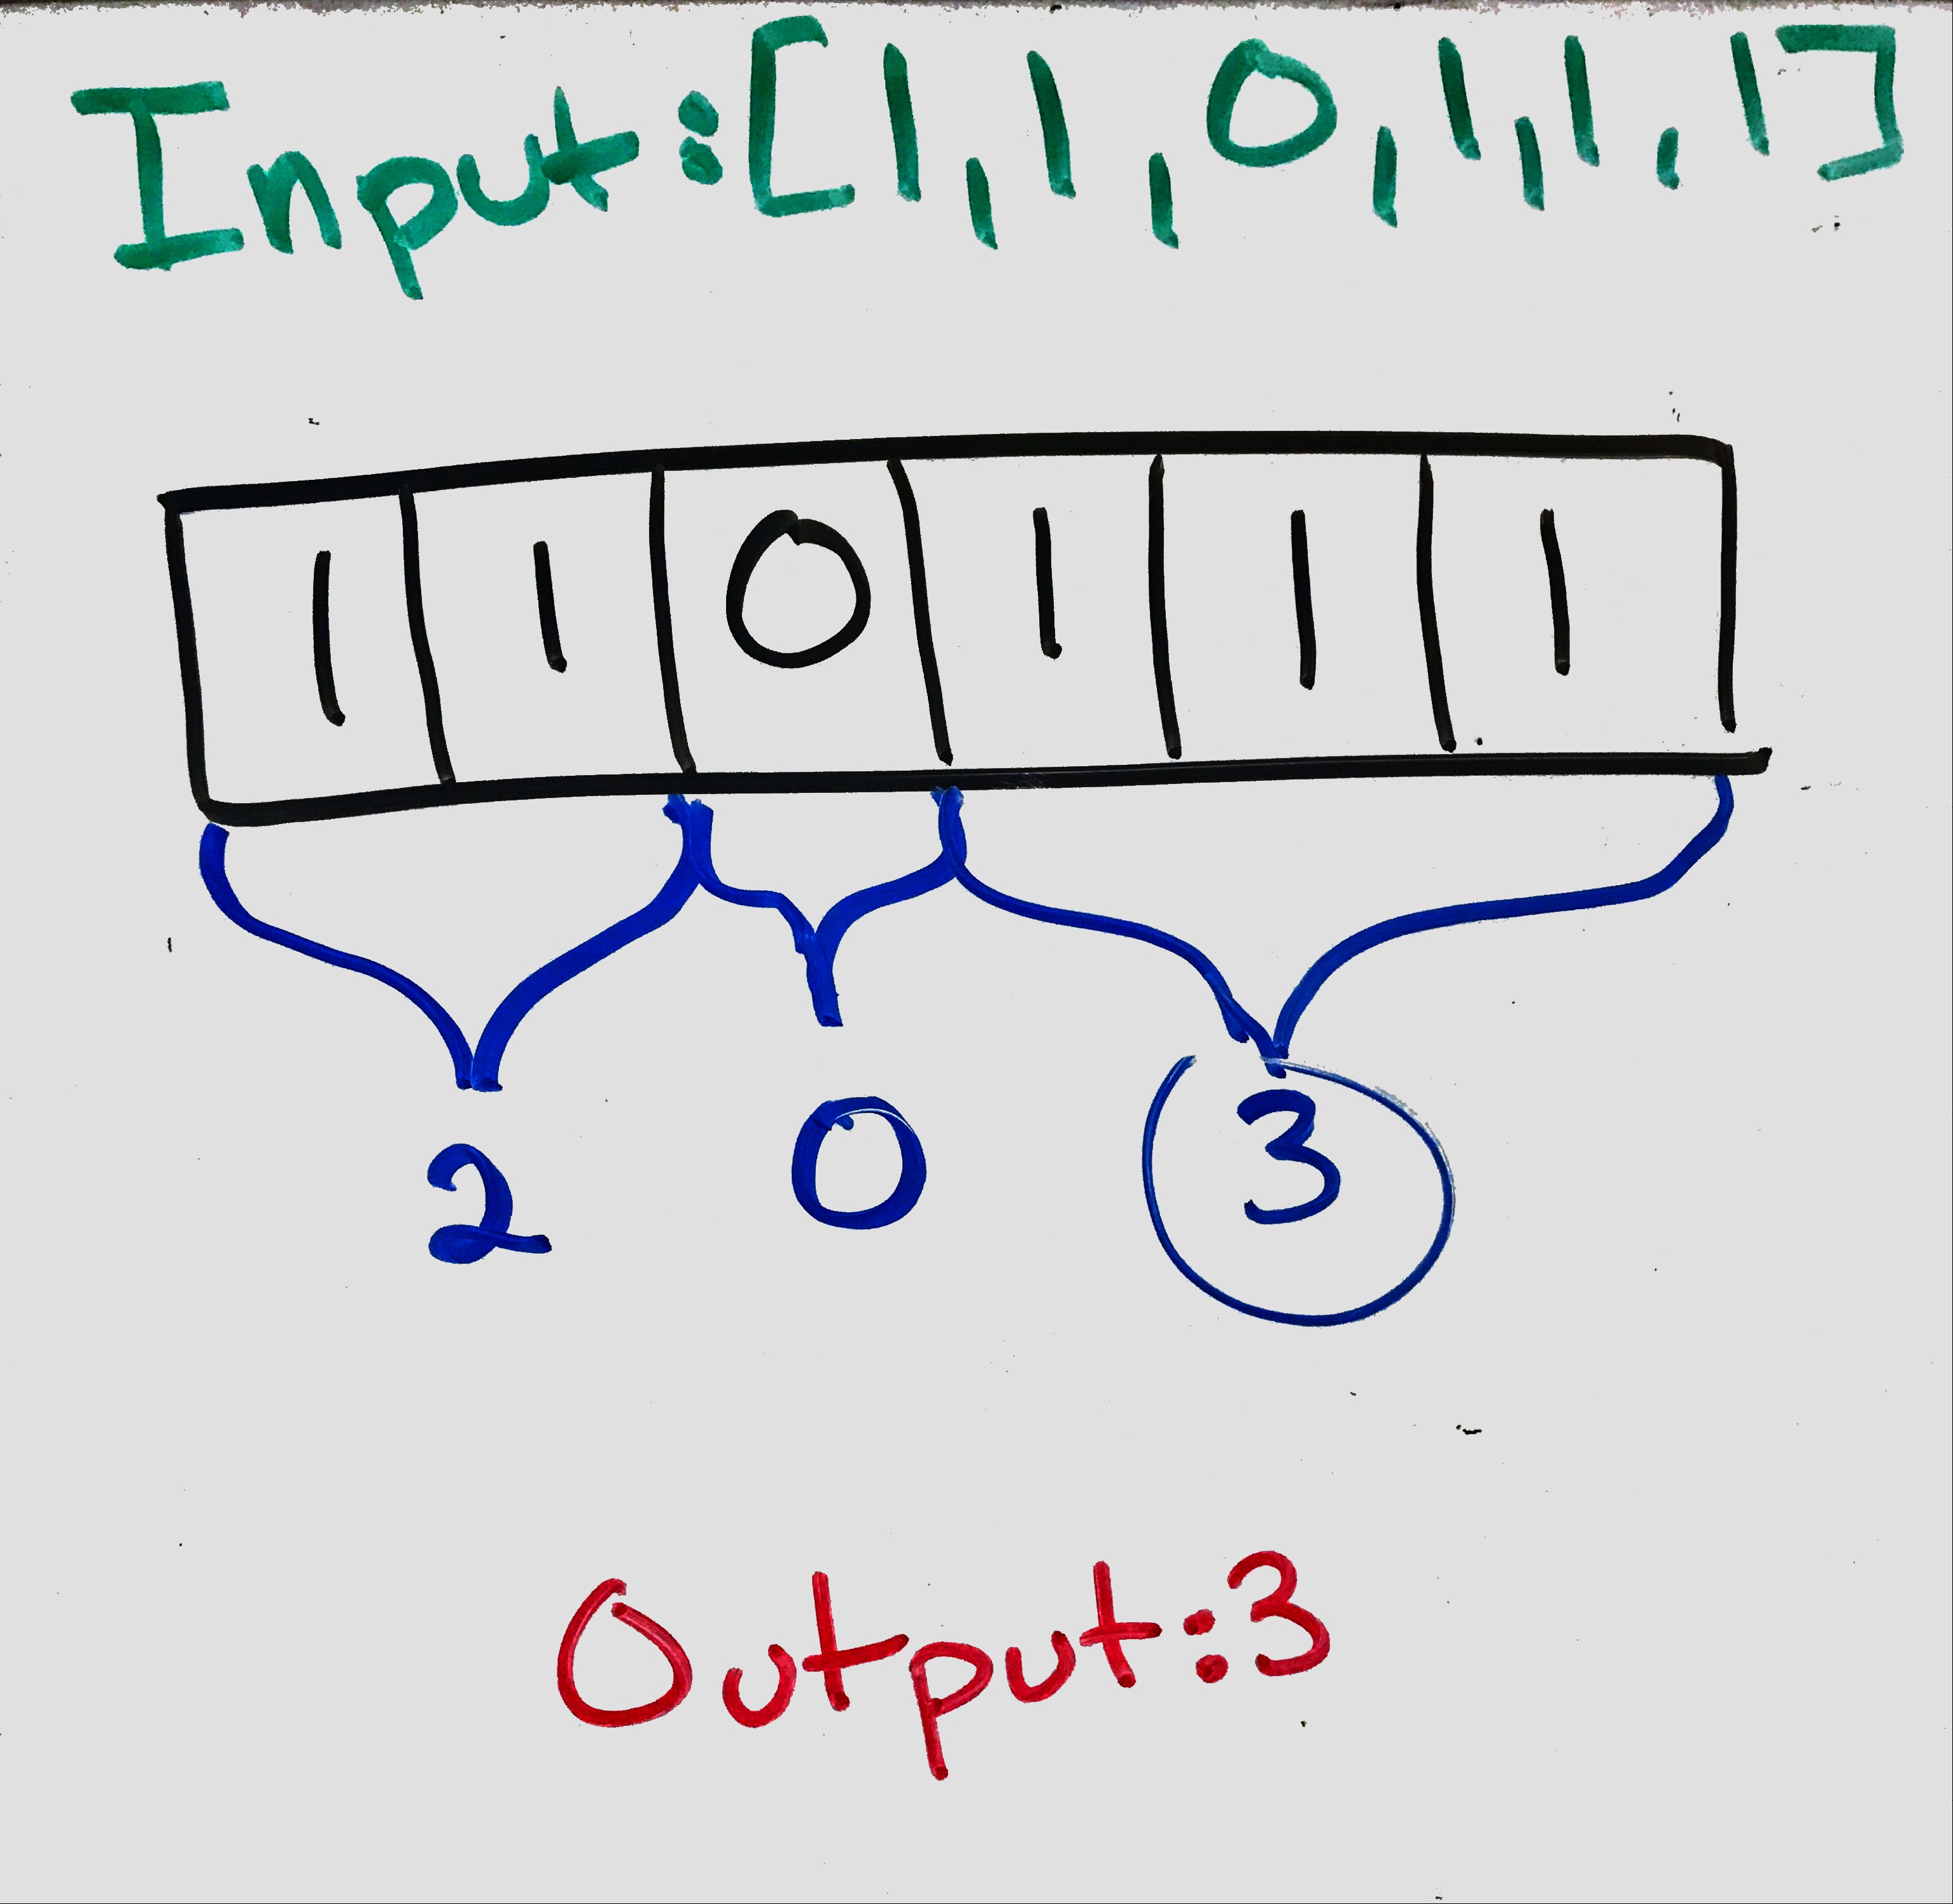 Input:[1,1,0,1,1,1]
1 1 0 1 1 1
2 0 3
Output:3